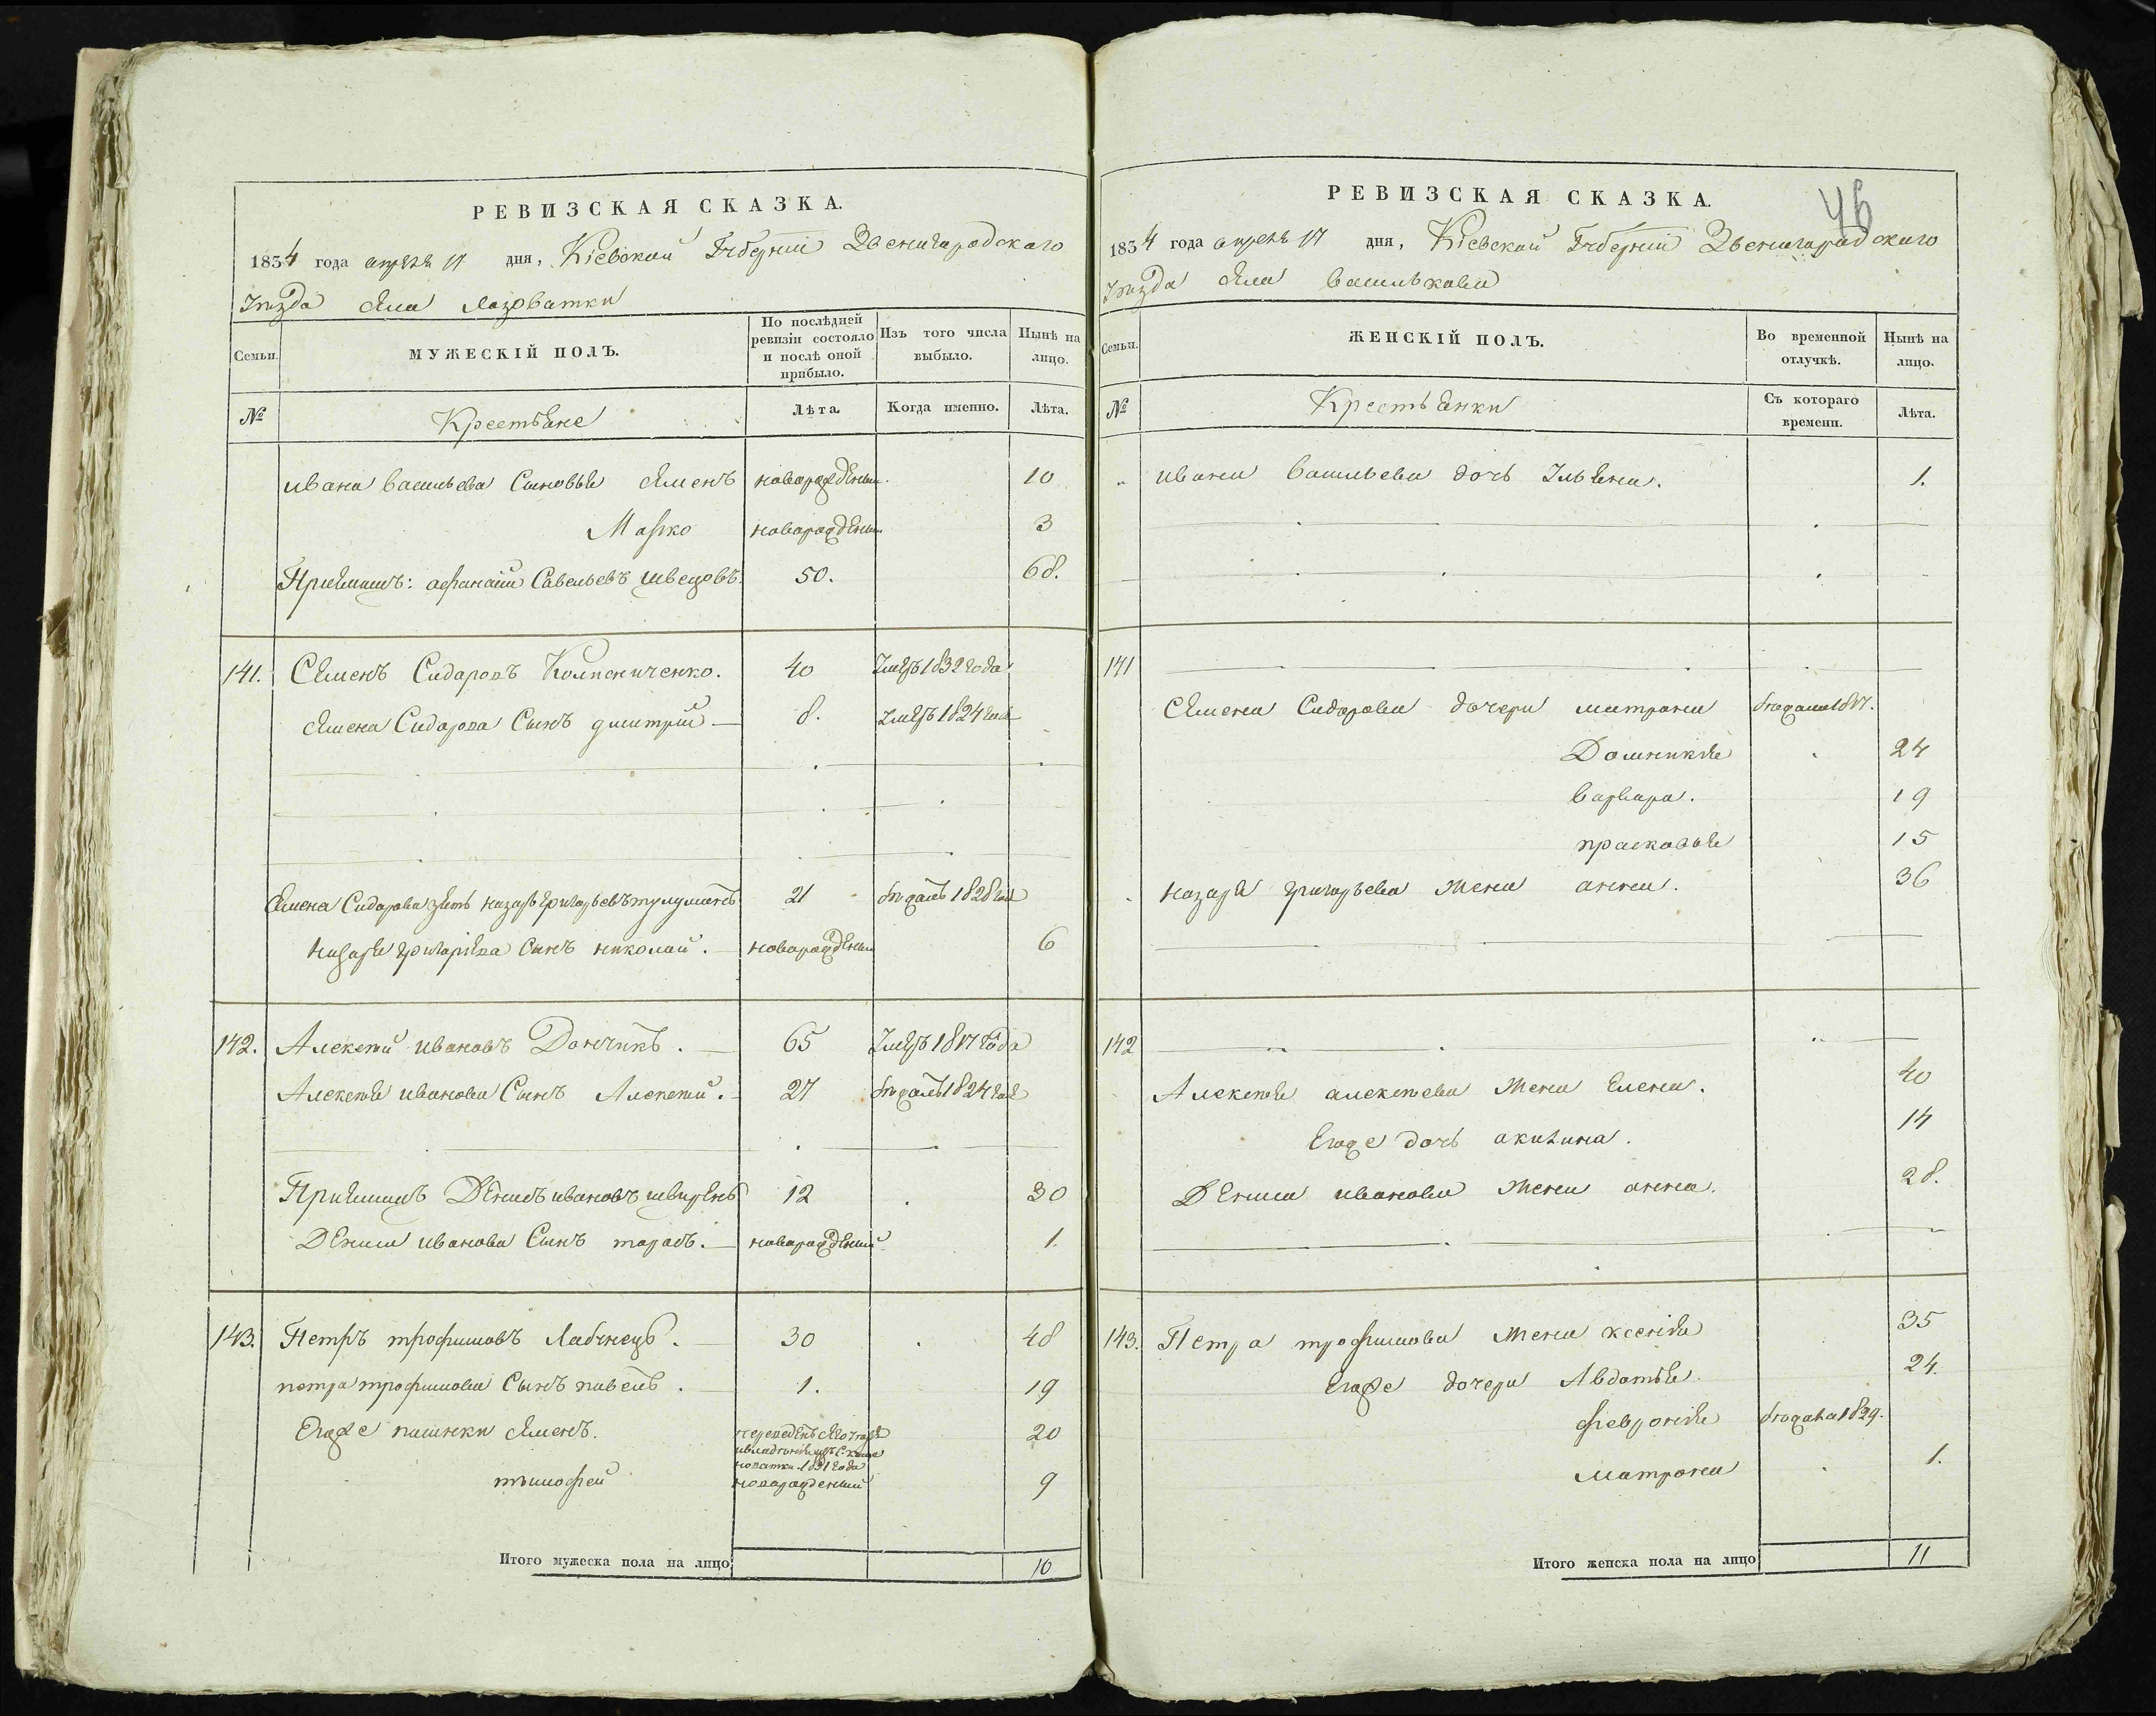 РЕВИЗСКАЯ СКАЗКА.
1834 года апреля 17 дня, Кіевской Губерніи Звенигородского
уезда села Лозоватки
Семьи. МУЖЕСКІЙ ПОЛЪ. По послѣдней ревизіи состояло и послѣ оной прибыло. Изъ того числа выбыло. Нынѣ на лицо.
№ Крестьяне Лѣта. Когда именно. Лѣта.
ивана васильева Сыновья семенъ новорожденъ 10
Марко новорожденъ 3
Приймашъ: афанасий Савельевъ швецовъ. 50. 68.
141. Семенъ Сидоровъ Колисниченко. 40 умеръ 1832 года
семена Сидорова Сынъ дмитрий 8. умеръ 1824 года
семена Сидорова зять назаръ григорьевъ 21 1828 года
назаря григорьева Сынъ николай. новорожденый 6
142. Алексей ивановъ Дончикъ. 65 умеръ 1817 года
Алексея иванова Сынъ Алексей. 27 1824 года
Приймашъ Денисъ ивановъ 12 30
Дениса иванова Сынъ тарасъ. новорожденый 1.
143. Петръ трофимовъ Лабунецъ. 30 48
петра трофимова Сынъ павелъ. 1. 19
Егоже пасинки семенъ. 1831 года 20
тимофей новорожденый 9
Итого мужеска пола на лицо 10
РЕВИЗСКАЯ СКАЗКА.
46
1834 года апреля 17 дня, Кіевской Губерніи Звенигородского
уезда села василькова
Семьи. ЖЕНСКІЙ ПОЛЪ. Во временной отлучкѣ. Нынѣ на лицо.
№ Крестьянки Съ котораго времени. Лѣта.
ивана васильева дочь ульяна. 1.
141
семена Сидорова дочери матрона 1817.
Домникия 24
варвара. 19
прасковья 15
назаря григорьева жена анна. 36
142
Алексея алексеева жена елена. 40
Егоже дочь акилина. 14
Дениса иванова жена анна. 28.
143. Петра трофимова жена ксения 35
Егоже дочери Авдотья. 24.
феврония 1829.
матрона 1.
Итого женска пола на лицо 11